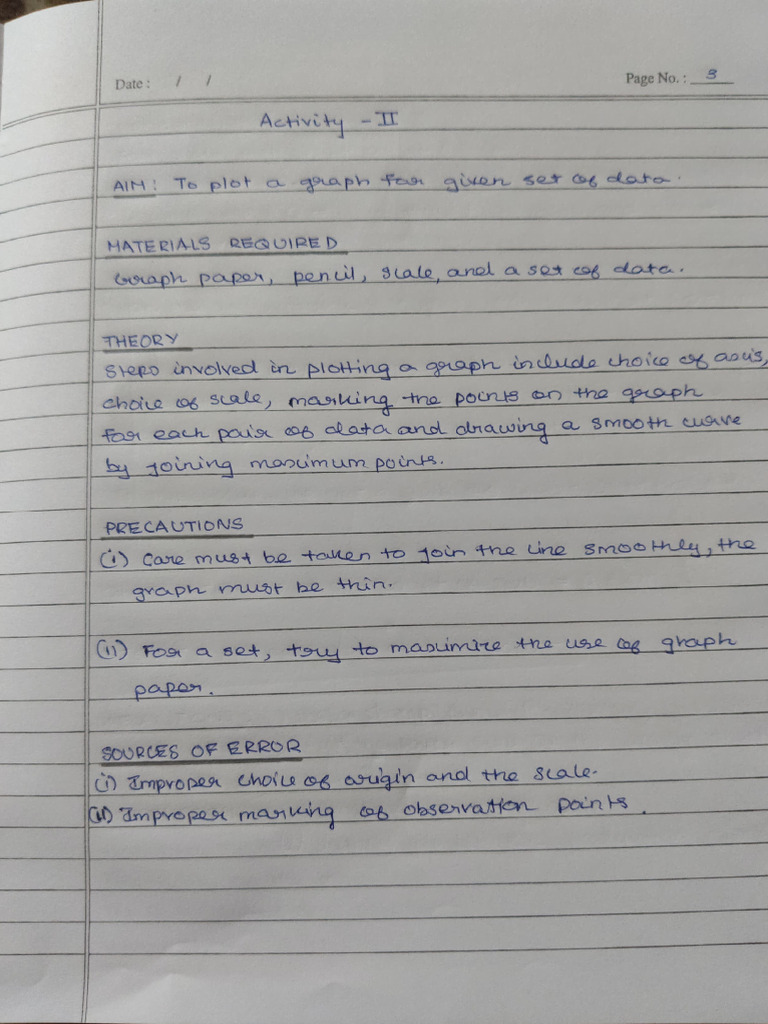 Date : / /
Page No. : 3
Activity - II
AIM: To plot a graph for given set of data.
MATERIALS REQUIRED
Graph paper, pencil, scale, and a set of data.
THEORY
Steps involved in plotting a graph include choice of axis,
choice of scale, marking the points on the graph
for each pair of data and drawing a smooth curve
by joining maximum points.
PRECAUTIONS
(i) Care must be taken to join the line smoothly, the
graph must be thin.
(ii) For a set, try to maximize the use of graph
paper.
SOURCES OF ERROR
(i) Improper choice of origin and the scale.
(ii) Improper marking of observation points.